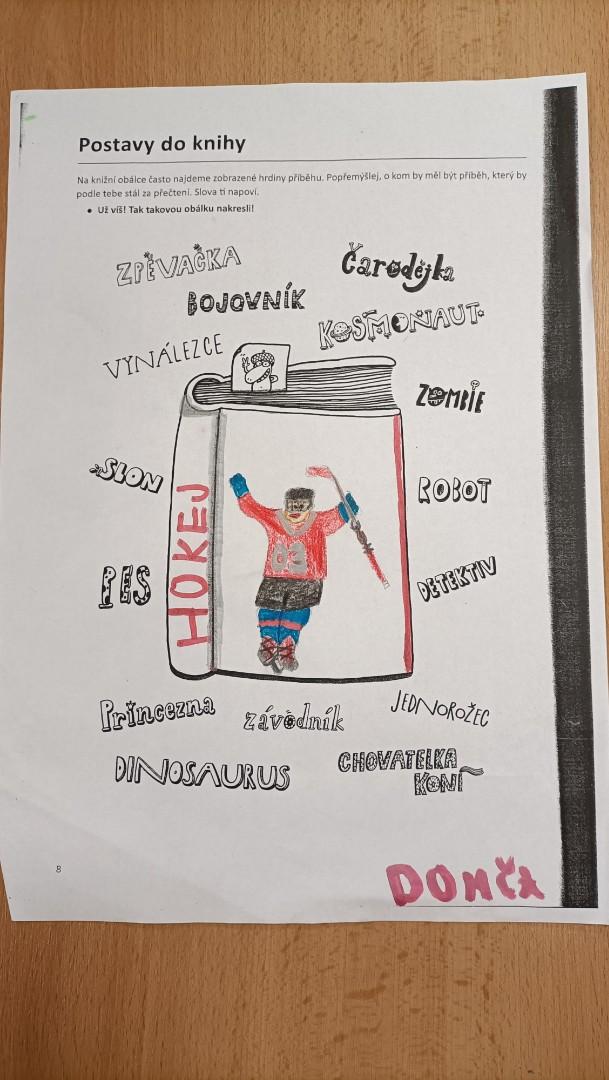 Postavy do knihy
Na knižní obálce často najdeme zobrazené hrdiny příběhu. Popřemýšlej, o kom by měl být příběh, který by
podle tebe stál za přečtení. Slova ti napoví.
• Už víš! Tak takovou obálku nakresli!
ZPĚVAČKA
Čarodějka
BOJOVNÍK
KOSMONAUT
VYNÁLEZCE
ZOMBIE
SLON
ROBOT
HOKEJ
03
PES
DETEKTIV
Princezna
závodník
JEDNOROŽEC
DINOSAURUS
CHOVATELKA
KONÍ
8
DOMČA